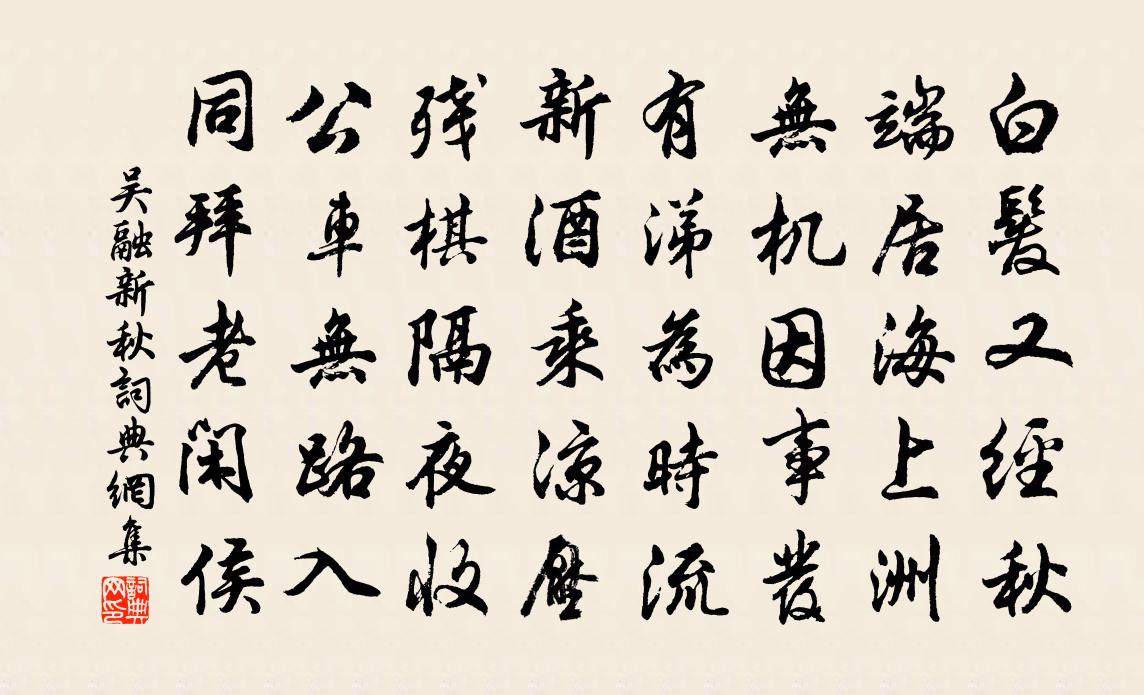 白髮又經秋
端居海上洲
無机因事發
有涕為時流
新酒乘涼壓
残棋隔夜收
公車無路入
同拜老閑侯
吴融新秋詞典網集
詞典网印